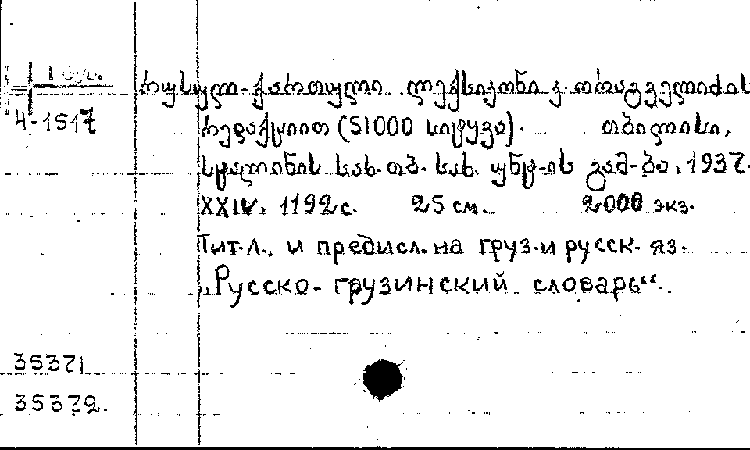 რუსულ-ქართული ლექსიკონი კ. დოდაშვილის
4-1517
რედაქციით (51000 სიტყვა). თბილისი,
სტალინის სახ. თბ. სახ. უნივ-ის გამ-ბა, 1937.
XXIV, 1192 с. 25 см. 2000 экз.
Тит. л., и предисл. на груз. и русск. яз.
„Русско-грузинский словарь“.
35371
35372.